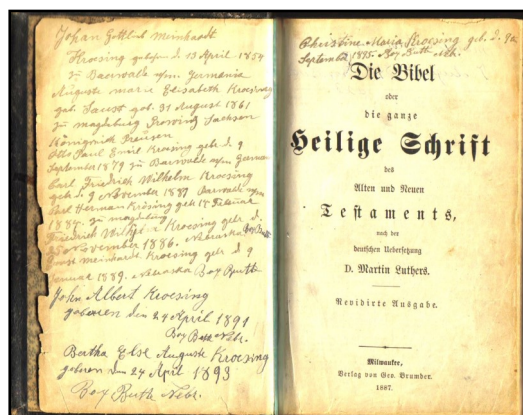 Johan Gottlieb Meinhardt
Kroesing geboren d. 13 April 1854
zu Baerwalde
Auguste Marie Elisabeth Kroesing
geb. Faust geb. 31 August 1861
zu Magdeburg Provinz Sachsen
Königreich Preusen
Otto Paul Emil Kroesing geb. d. 9
September 1879 zu Baerwalde
Carl Friedrich Wilhelm Kroesing
geb. d. 9 November Baerwalde
Herman Krösing geb 18 Februar
1884 zu Magdeburg
Friedrich Kroesing geb. d.
25 November 1886. Nebraska
Meinhardt Kroesing geb d 9
Januar 1889. Nebraska Box Butte
John Albert Kroesing
geboren den 24 April 1891
Box Butte Nebr.
Bertha Else Auguste Kroesing
geboren den 24 April 1893
Box Butte Nebr.
Christine Maria Kroesing geb. d.
September 1895. Box Butte Neb.
Die Bibel
oder
die ganze
Heilige Schrift
des
Alten und Neuen
Testaments,
nach der
deutschen Uebersetzung
D. Martin Luthers.
Revidirte Ausgabe.
Milwaukee,
Verlag von Geo. Brumder.
1887.